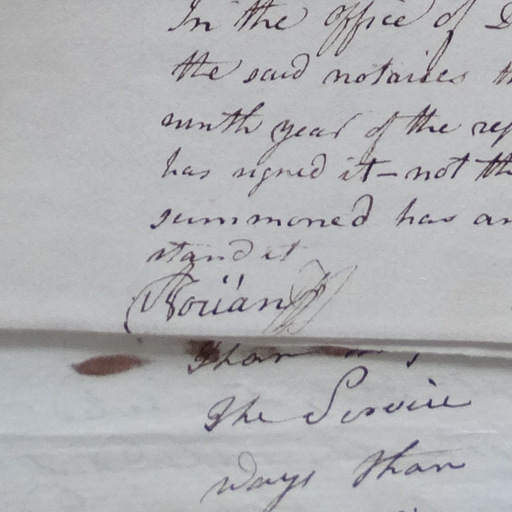 In the office of
the said notaries
ninth year of the rep
has signed it - not th
summoned has an
stand it
Roüan
than
the Service
ways than